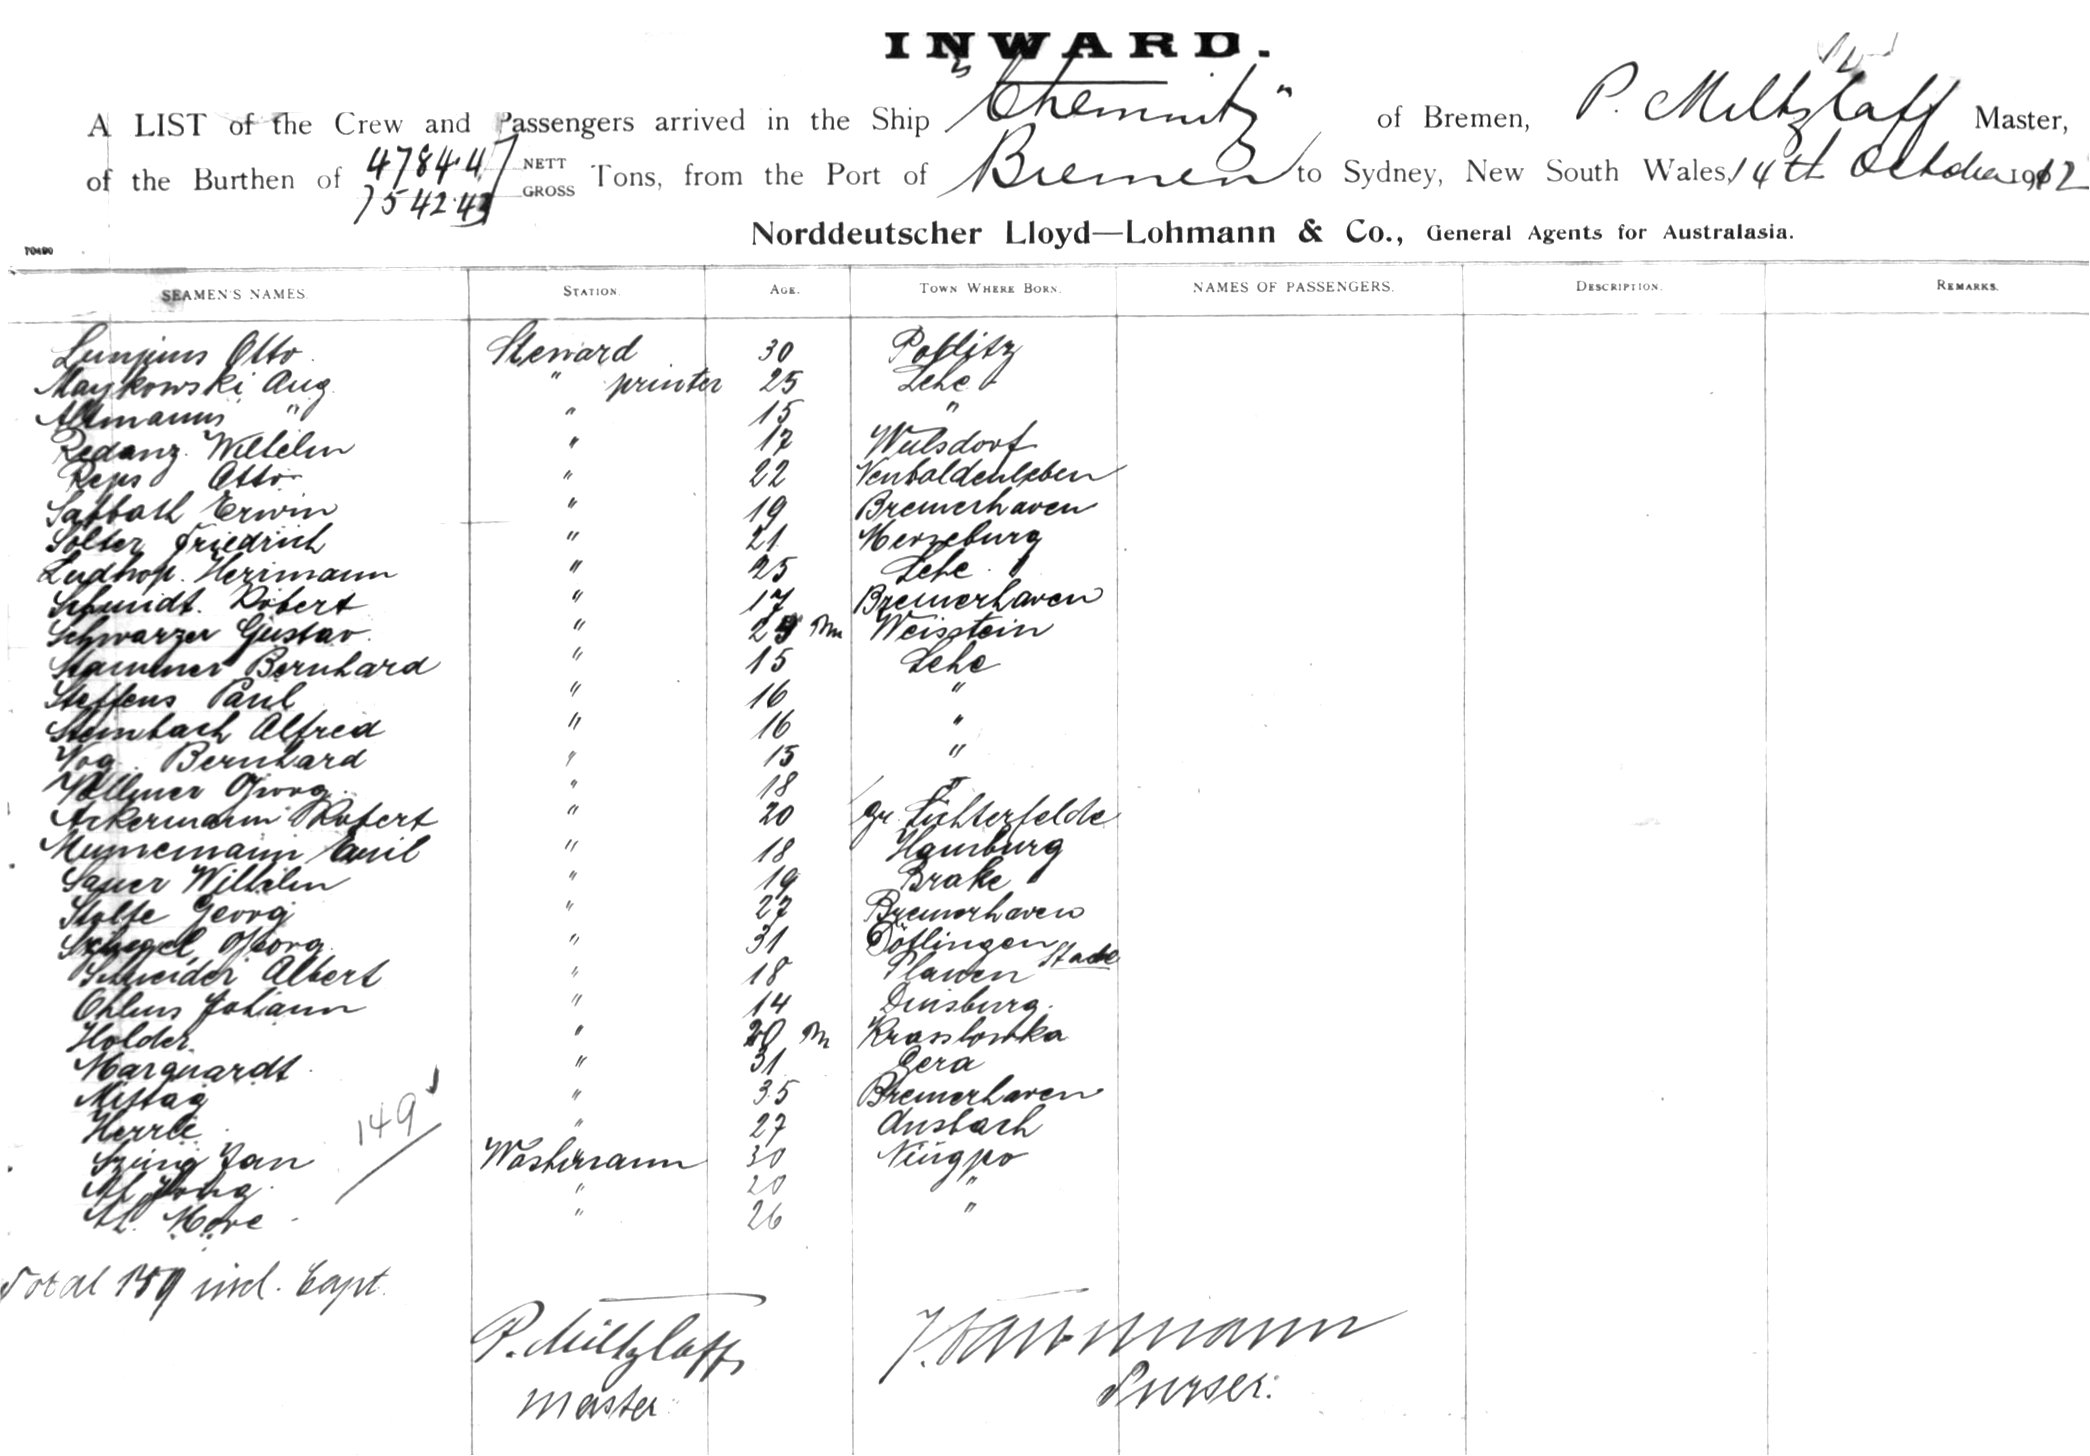 INWARD.
A LIST of the Crew and Passengers arrived in the Ship "Chemnitz" of Bremen, P. Miltzlaff Master,
of the Burthen of 4784.47 NETT 7542.43 GROSS Tons, from the Port of Bremen to Sydney, New South Wales, 14th October 1912
Norddeutscher Lloyd—Lohmann & Co., General Agents for Australasia.
SEAMEN'S NAMES. STATION. AGE. TOWN WHERE BORN. NAMES OF PASSENGERS. DESCRIPTION. REMARKS.
Otto Steward 30
Maykowski Aug. " printer 25 Lehe
Altmanns " " 15 "
Redanz Wilhelm " 17 Wulsdorf
Reps Otto " 22
Sabbath Erwin " 19 Bremerhaven
Solter Friedrich " 21 Merseburg
Ludhop. Herrmann " 25 Lehe
Schmidt. Robert " 17 Bremerhaven
Schwarzer Gustav " 25 Weisstein
Stammer Bernhard " 15 Lehe
Steffens Paul " 16 "
Steinbach Alfred " 16 "
Vog. Bernhard " 15 "
Vollmer Georg " 18 "
Ackermann Robert " 20 Gr. Lichterfelde
Munemann Emil " 18 Hamburg
Sauer Wilhelm " 19 Brake
Stolte Georg " 27 Bremerhaven
Georg " 31 Dötlingen Stade
Schneider Albert " 18 Plauen
Ohlms Johann " 14 Duisburg.
Holder " 20 Krasslowka
Marquardt " 31 Gera
Mittag " 35 Bremerhaven
Herrle " 27 Ansbach
149
Szing Jan Washmann 30 Ningpo
Ah " 20 "
Ah. More " 26 "
Total 159 incl. Capt.
P. Miltzlaff
Master
Purser.